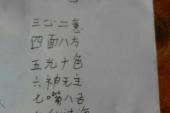 三心二意
四面八方
五光十色
六神无主
七嘴八舌